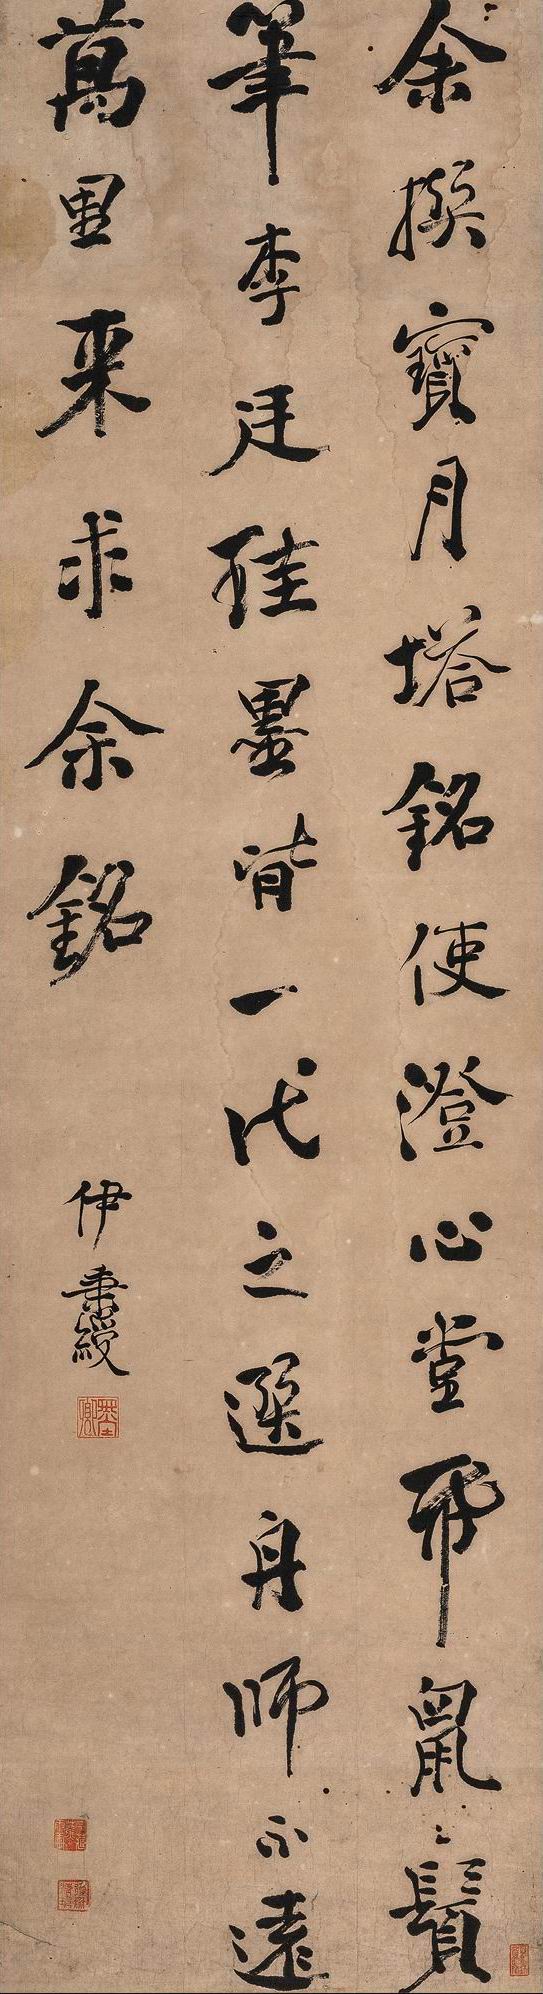 余撰寶月塔銘使澄心堂帋鼠鬚
筆李廷珪墨皆一代之選舟師不遠
萬里来求余銘
伊秉綬
墨卿